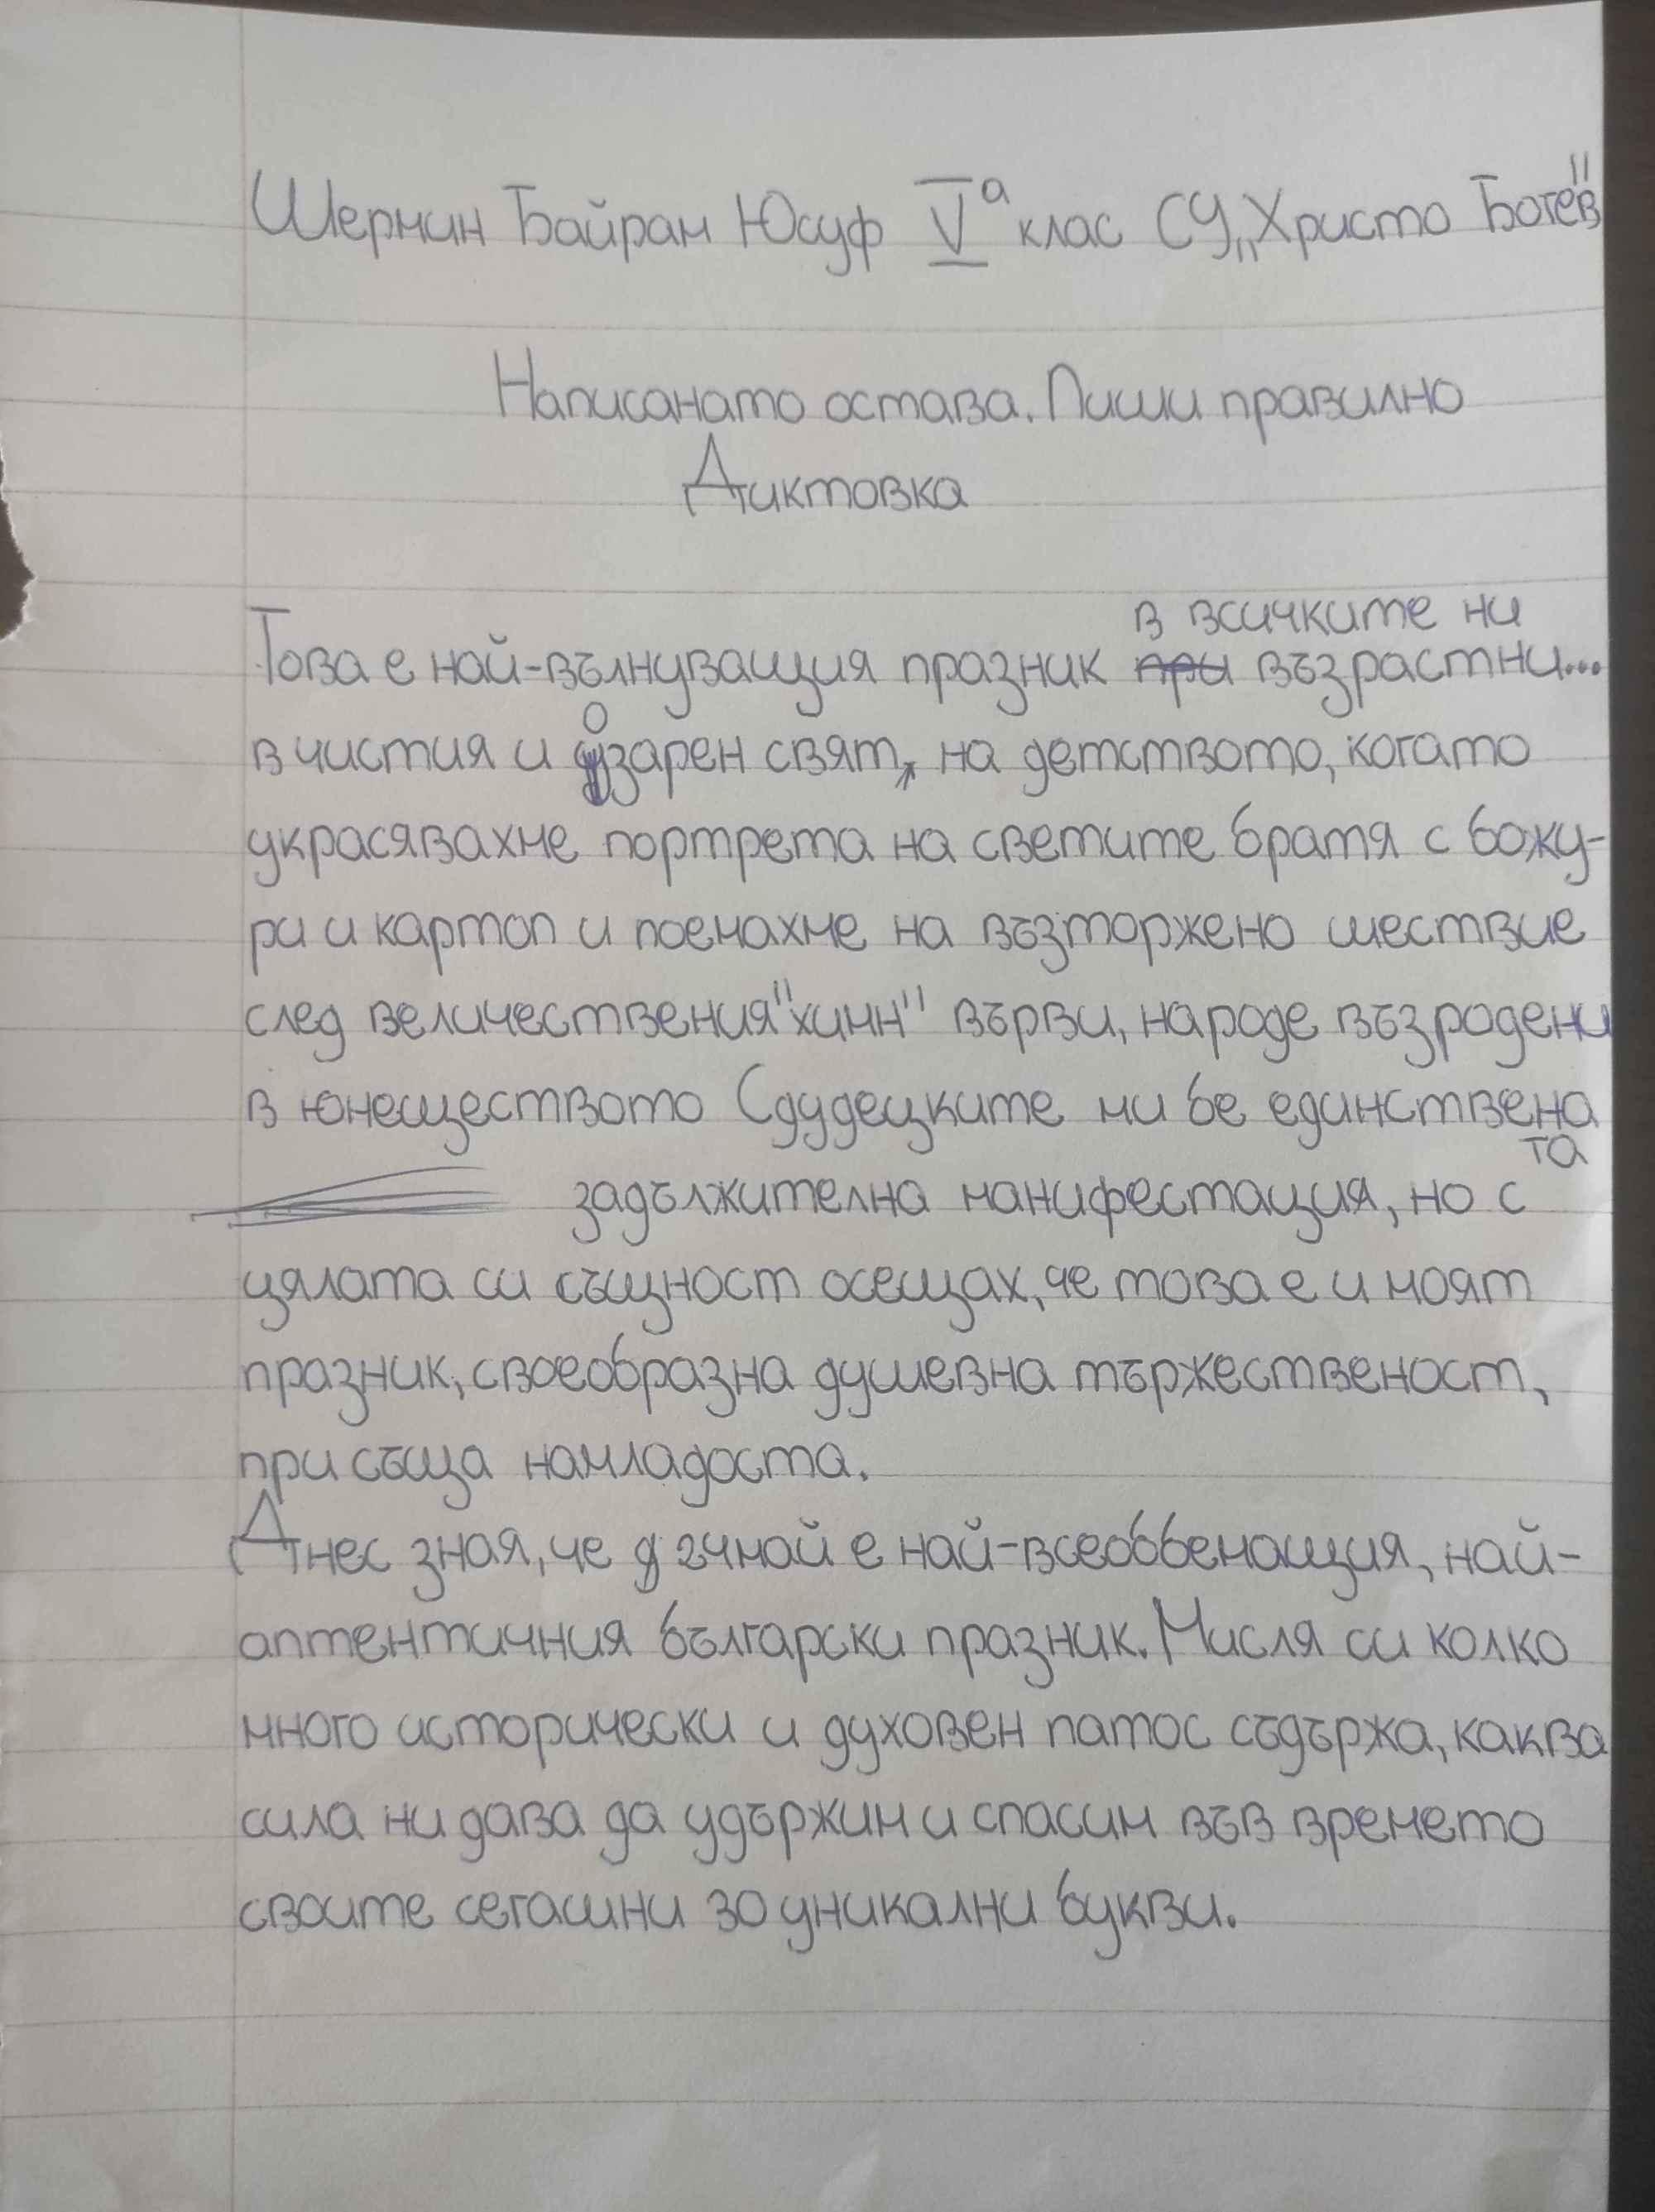 Шермин Байрам Юсуф Vа клас СУ „Христо Ботев"
Написанато остава. Пиши правилно
Диктовка
в всичките ни
Това е най-вълнуващия празник при възрастни...
в чистия и озарен свят, на детството, когато
украсявахме портрета на светите братя с божу-
ри и картоп и поемахме на възторжено шествие
след величествения "химн" върви, народе възродени
в юнешеството Сдудецките ми бе единствена
та
задължителна манифестация, но с
цялата си същност осещах, че това е и моят
празник, своеобразна душевна тържественост,
при съща намладоста.
Днес зная, че 24май е най-всеобемащия, най-
аптентичния български празник. Мисля си колко
много исторически и духовен патос съдържа, каква
сила ни дава да удържим и спасим във времето
своите сегашни 30 уникални букви.